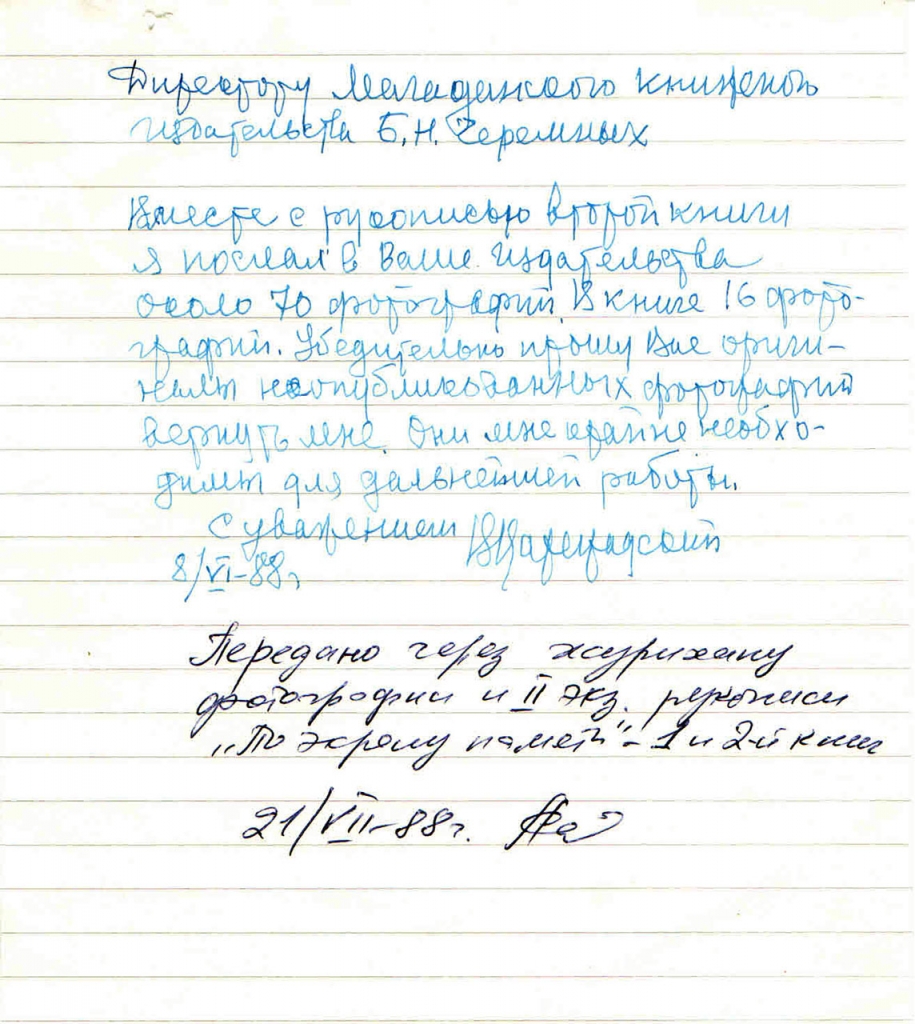 Директору Магаданского книжного
издательства Б.Н. Черемных
Вместе с рукописью второй книги
я послал в Ваше издательства
около 70 фотографий. В книге 16 фото-
графий. Убедительно прошу Вас ориги-
налы неопубликованных фотографий
вернуть мне. Они мне крайне необхо-
димы для дальнейшей работы.
С уважением ВЦареградский
8/VI-88г.
Передано через
фотографии и II экз. рукописи
„По экрану памяти" - 1 и 2-й книг
21/VII-88г.